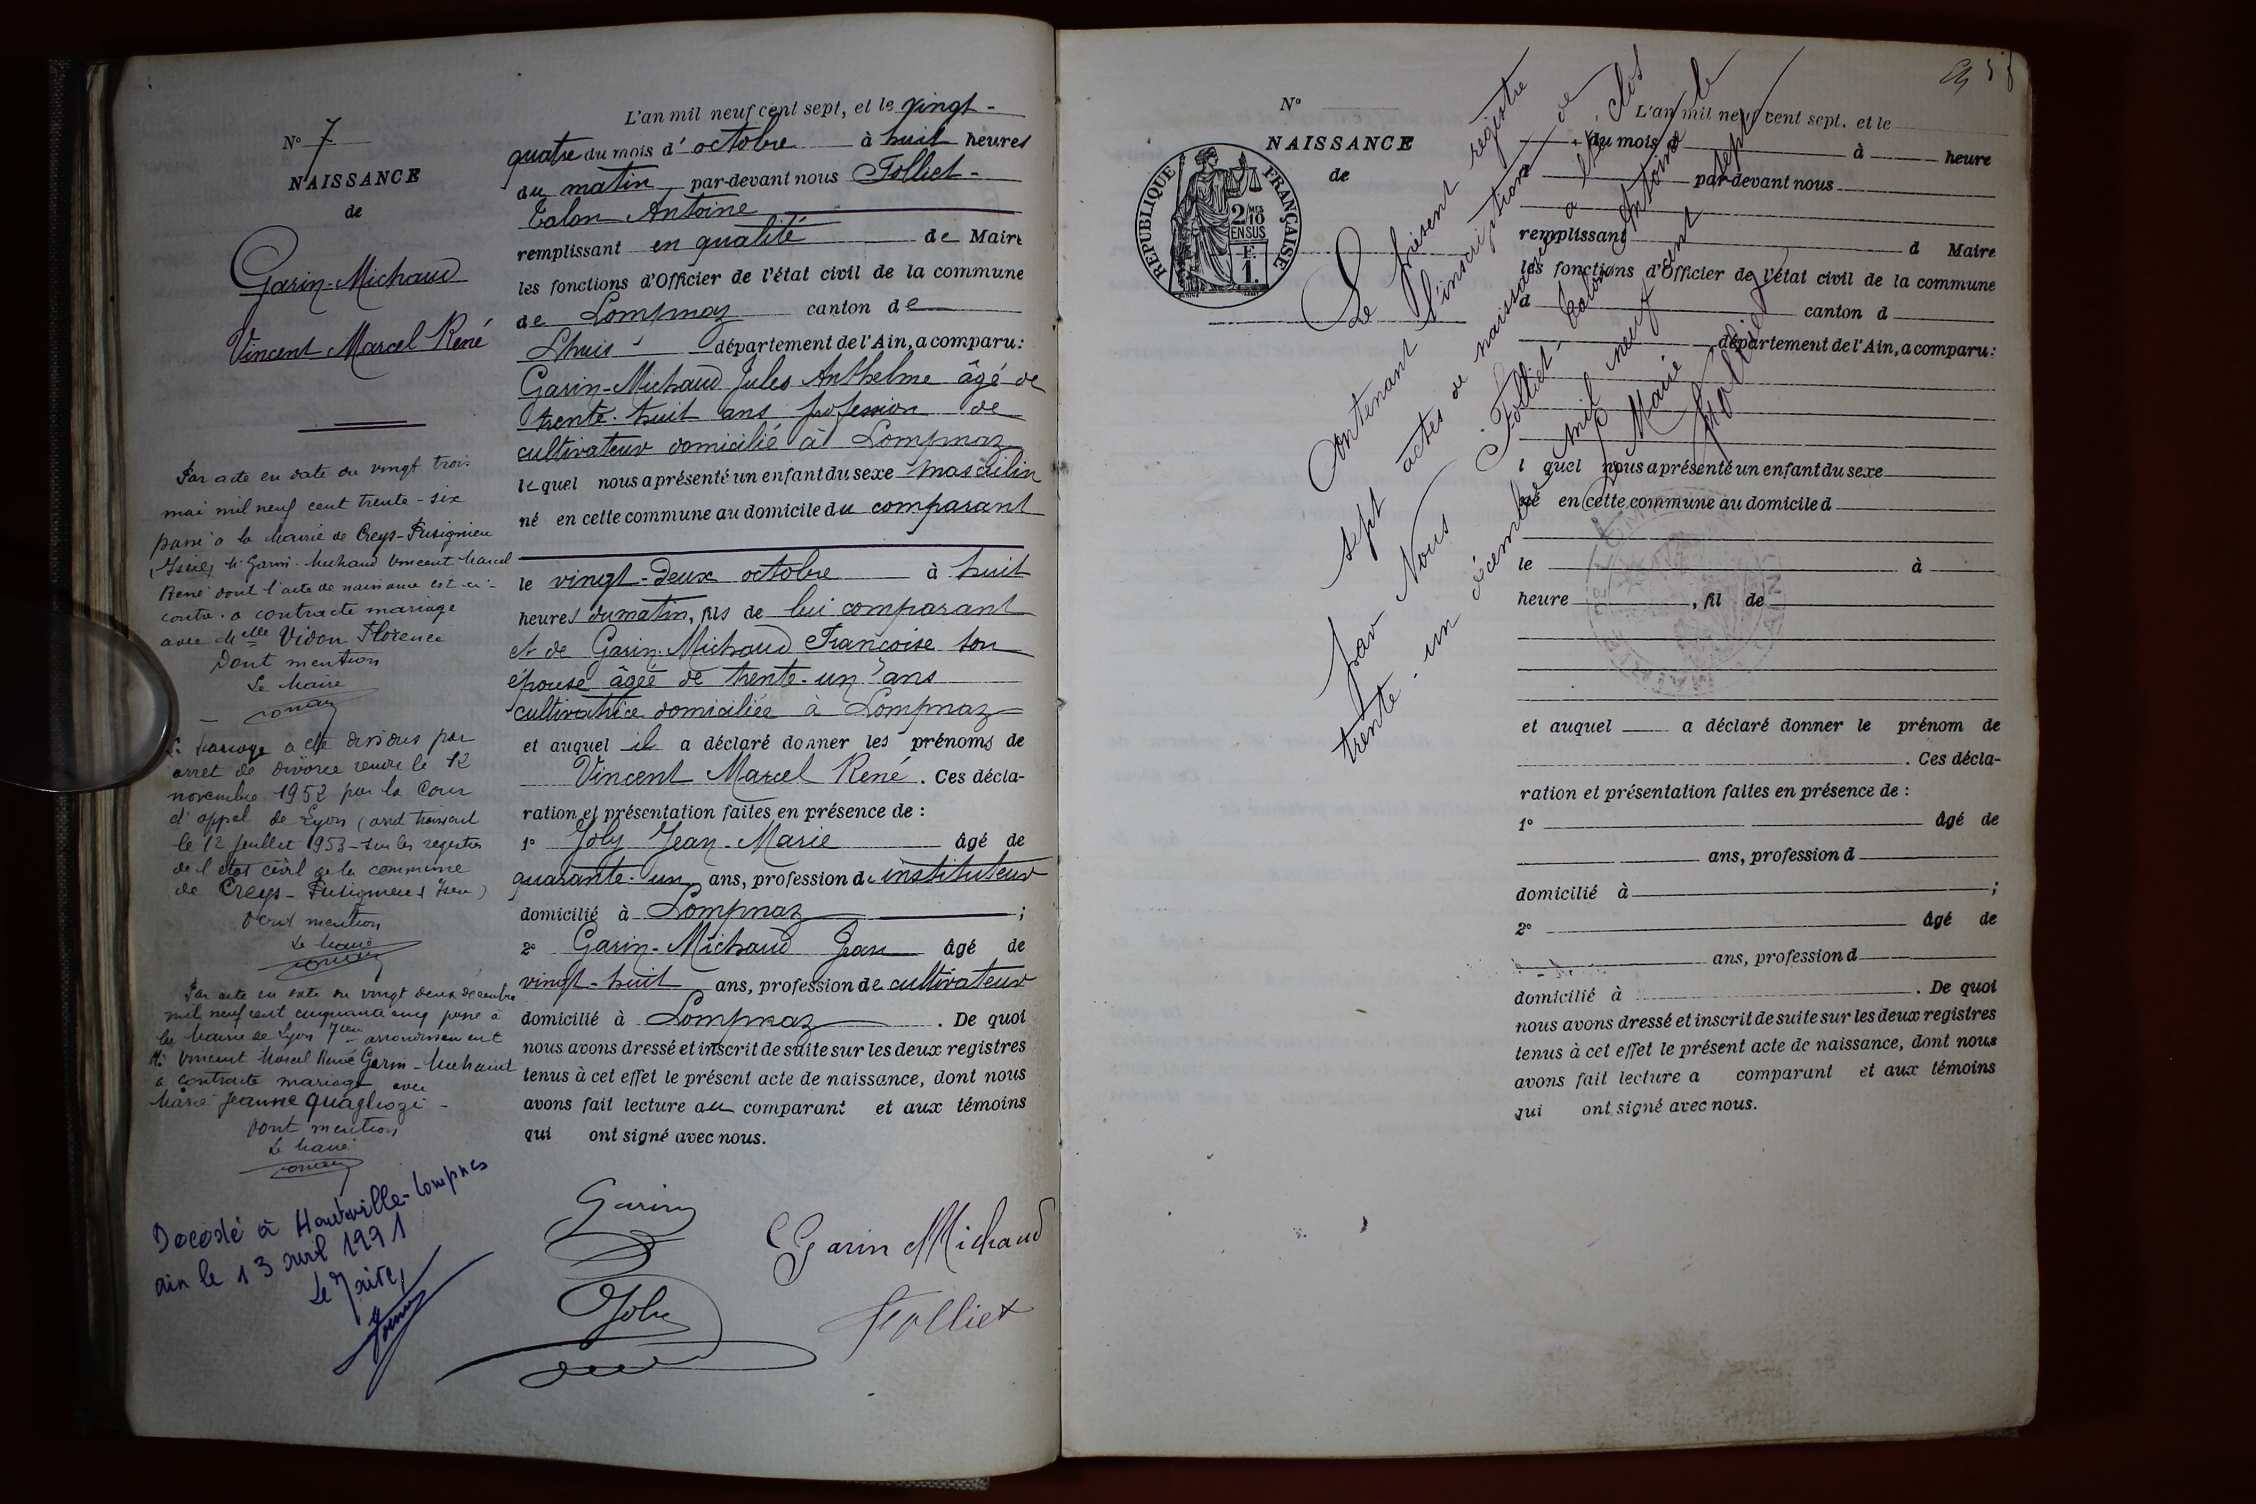 N° 7
NAISSANCE
de
Garin-Michaud
Vincent Marcel René
Par acte en date du vingt trois
mai mil neuf cent trente-six
passé à la Mairie de Creys-Pusignieu
(Isère) Mr Garin-Michaud Vincent Marcel
René dont l'acte de naissance est ci-
contre a contracté mariage
avec Melle Vidon Florence
Dont mention
Le Maire
mariage a été dissous par
arrêt de divorce rendu le 12
novembre 1952 par la Cour
d'appel de Lyon (arrêt transcrit
le 12 Juillet 1953 - sur les registres
de l'état civil de la commune
de Creys-Pusignieu (Isère)
Dont mention
Le Maire
Par acte en date du vingt deux décembre
mil neuf cent cinquante cinq passé à
la Mairie de Lyon 7ème arrondissement
Mr Vincent Marcel René Garin-Michaud
a contracté mariage avec
Marie Jeanne Quagliozi -
Dont mention
Le Maire
Décédé à Hauteville-Lompnes
ain le 13 avril 1991
Le Maire,
L'an mil neuf cent sept, et le vingt-
quatre du mois d'octobre à huit heures
du matin, par-devant nous Folliet-
Talon Antoine
remplissant en qualité de Maire
les fonctions d'Officier de l'état civil de la commune
de Lompnaz canton de
Lhuis département de l'Ain, a comparu:
Garin-Michaud Jules Anthelme âgé de
trente-huit ans profession de
cultivateur domicilié à Lompnaz
lequel nous a présenté un enfant du sexe masculin
né en cette commune au domicile du comparant
le vingt-deux octobre à huit
heures du matin, fils de lui comparant
et de Garin-Michaud Françoise son
épouse âgée de trente-un ans
cultivatrice domiciliée à Lompnaz
et auquel il a déclaré donner les prénoms de
Vincent Marcel René. Ces décla-
ration et présentation faites en présence de :
1° Joly Jean-Marie âgé de
quarante-un ans, profession d'instituteur
domicilié à Lompnaz ;
2° Garin-Michaud Jean âgé de
vingt-huit ans, profession de cultivateur
domicilié à Lompnaz. De quoi
nous avons dressé et inscrit de suite sur les deux registres
tenus à cet effet le présent acte de naissance, dont nous
avons fait lecture au comparant et aux témoins
qui ont signé avec nous.
Garin
Garin Michaud
Joly
Folliet
58
N°
NAISSANCE
de
RÉPUBLIQUE FRANÇAISE
2/10 EN SUS
F. 1.
Le présent registre
contenant l'inscription de
sept actes de naissance a été clos
par Nous Folliet-Talon Antoine le
trente-un décembre mil neuf cent sept
Le Maire
Folliet
L'an mil neuf cent sept. et le
du mois à heure
par-devant nous
remplissant d Maire
les fonctions d'Officier de l'état civil de la commune
d canton d
département de l'Ain, a comparu:
l quel nous a présenté un enfant du sexe
né en cette commune au domicile d
le à
heure , fil de
et auquel a déclaré donner le prénom de
. Ces décla-
ration et présentation faites en présence de :
1° âgé de
ans, profession d
domicilié à ;
2° âgé de
ans, profession d
domicilié à . De quoi
nous avons dressé et inscrit de suite sur les deux registres
tenus à cet effet le présent acte de naissance, dont nous
avons fait lecture a comparant et aux témoins
qui ont signé avec nous.